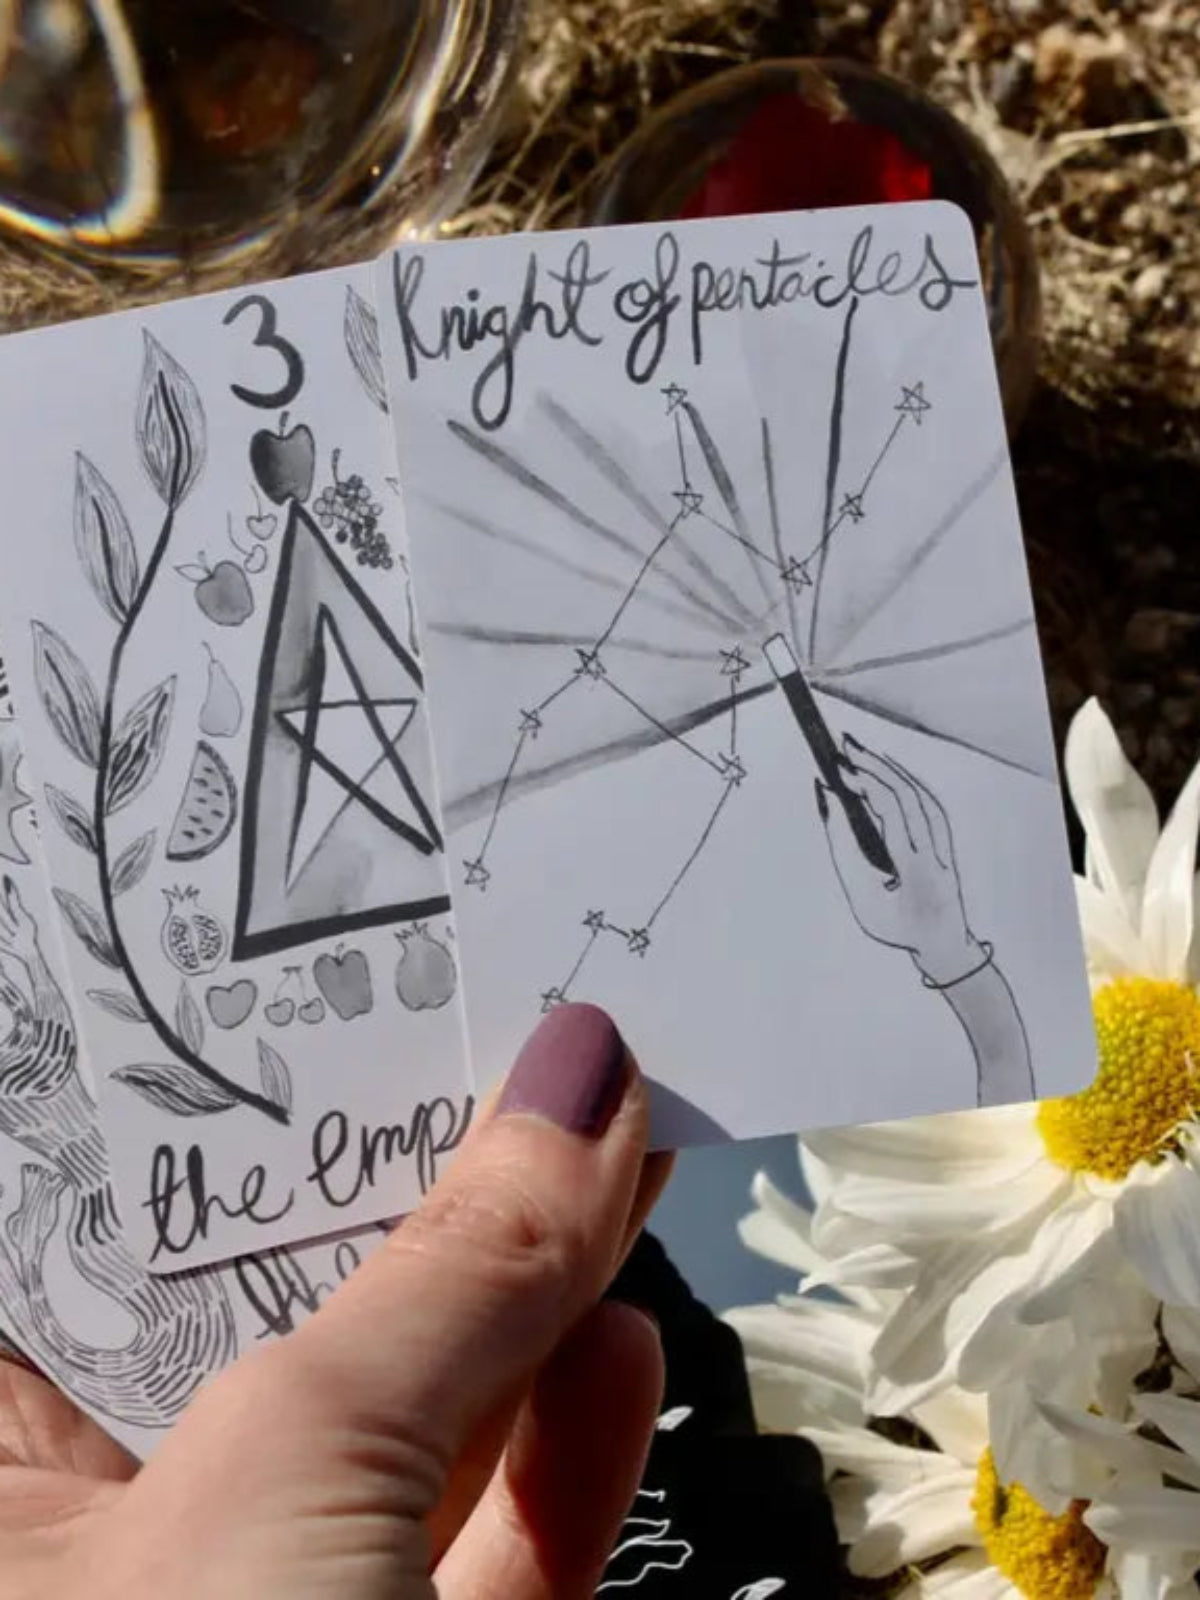 3
the emp
Knight of pentacles
the